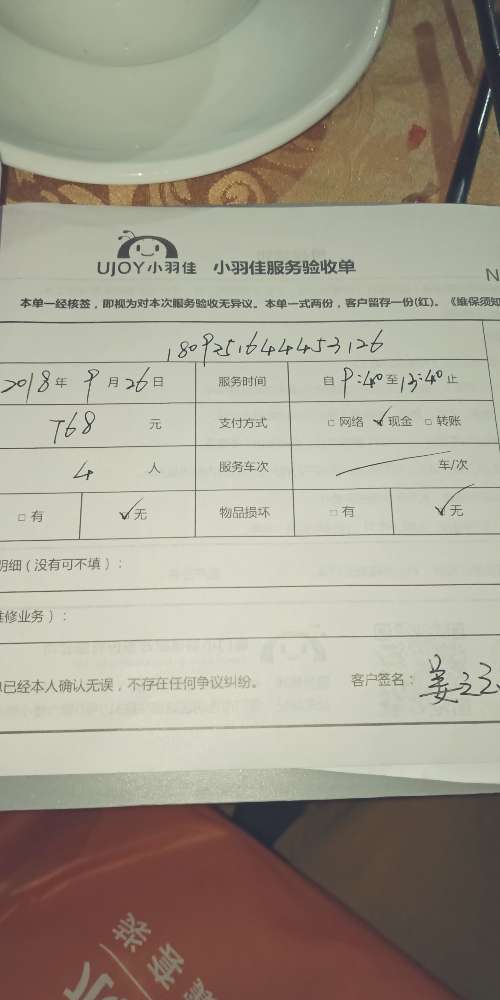 UJOY小羽佳 小羽佳服务验收单
N
本单一经核签，即视为对本次服务验收无异议。本单一式两份，客户留存一份(红)。《维保须知
1809251644453126
2018年 9月26日 服务时间 自 9:40 至 13:40 止
768 元 支付方式 □ 网络 ☑现金 □ 转账
4 人 服务车次 车/次
□ 有 ☑无 物品损坏 □ 有 ☑无
明细（没有可不填）：
维修业务）：
已经本人确认无误，不存在任何争议纠纷。 客户签名： 姜